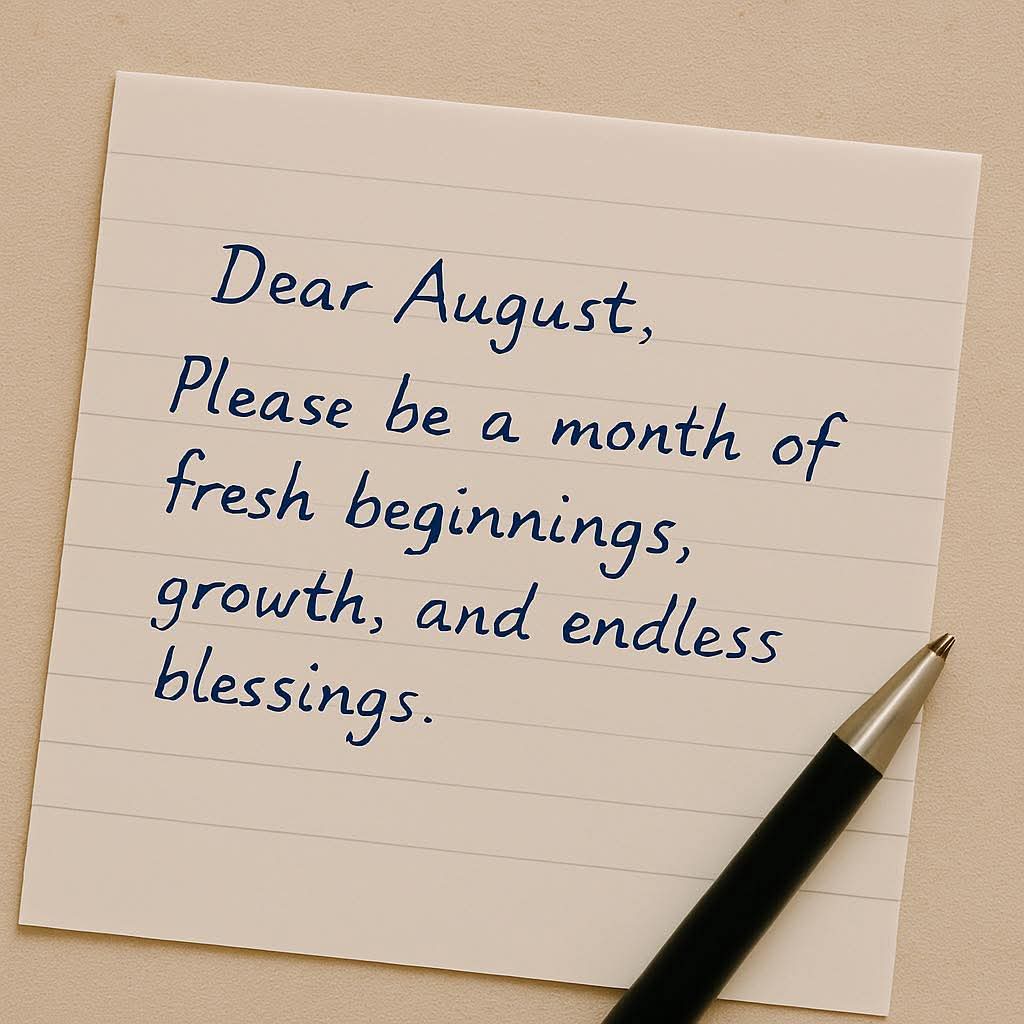 Dear August,
Please be a month of
fresh beginnings,
growth, and endless
blessings.